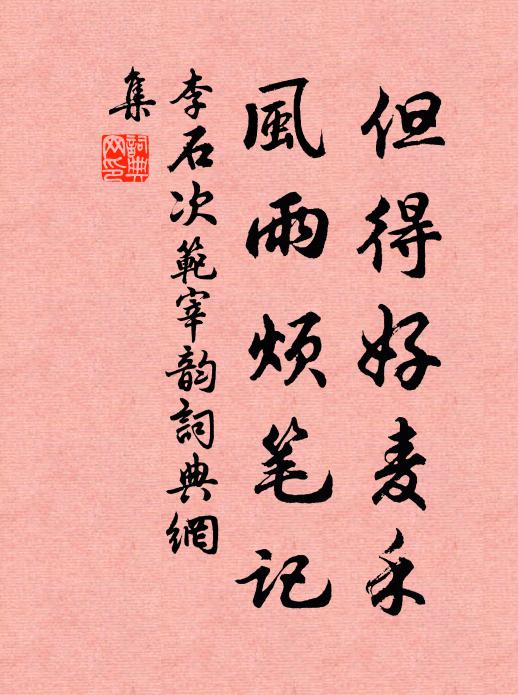 但得好麦禾
風雨烦笔记
李石次範宰韵詞典網
集
詞典
网印